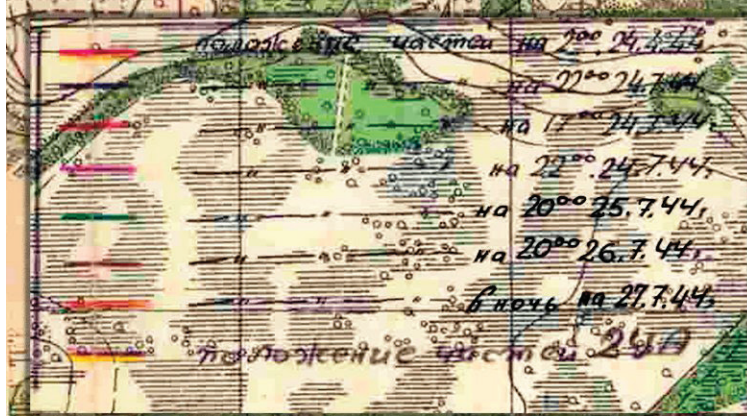 положение частей на 2⁰⁰ 24.7.44,
— " — " — на 22⁰⁰ 24.7.44,
— " — " — на 17⁰⁰ 24.7.44,
— " — " — на 22⁰⁰ 24.7.44,
— " — " — на 20⁰⁰ 25.7.44,
— " — " — на 20⁰⁰ 26.7.44,
— " — " — в ночь на 27.7.44,
положение частей 2УА